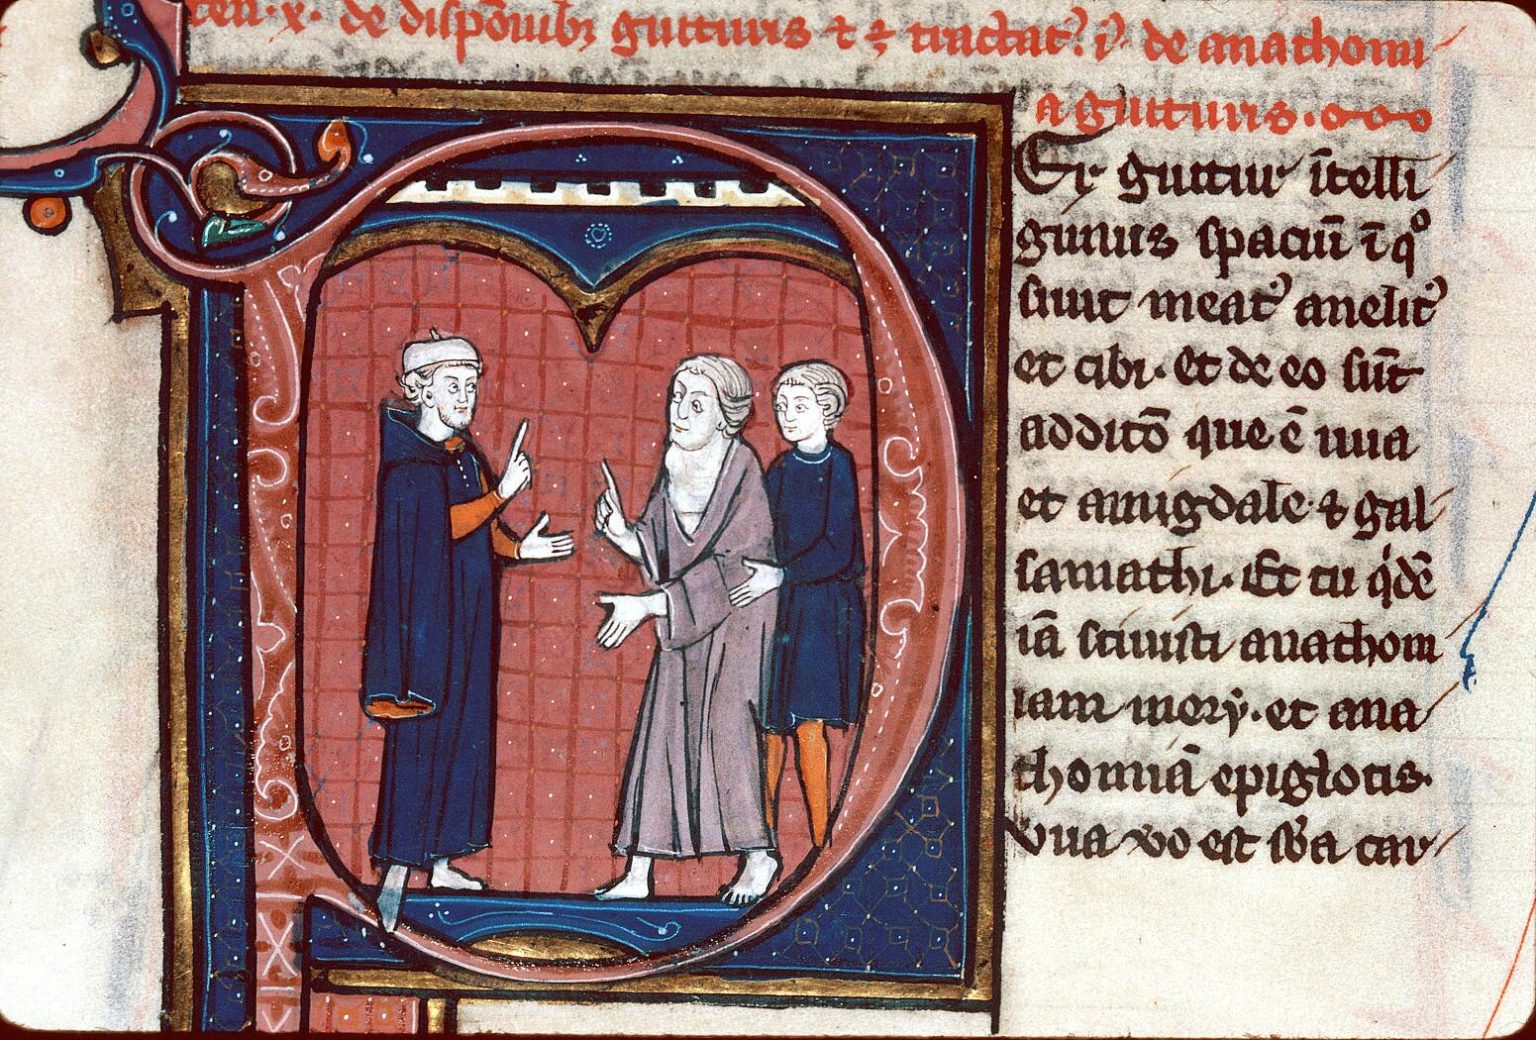 fen. x. de disponib3 gutturis t ē tractat9. i9. de anathomi
a gutturis.
Er guttur ītelli
gimus spaciū ī qo
sunt meat9 anelit9
et cibi. et de eo sūt
additō que ē uua
et amigdale. t gal
samathi. Et tu qidē
iā sciuisti anathom
iam mery. et ana
thomiā epiglotis.
vua vo est sb'a car